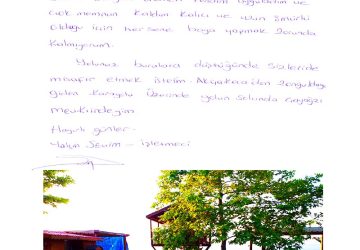 çok memnun kaldım Kalıcı ve uzun ömürlü
olduğu için her sene boya yapmak zorunda
kalmıyorum.
Yolunuz buralara düştüğünde sizleride
misafir etmek isterim. Akçakoca'dan Zonguldağa
giden Karayolu üzerinde yolun solunda
mevkiindeyim.
Hayırlı günler.
Yalçın - İşletmeci